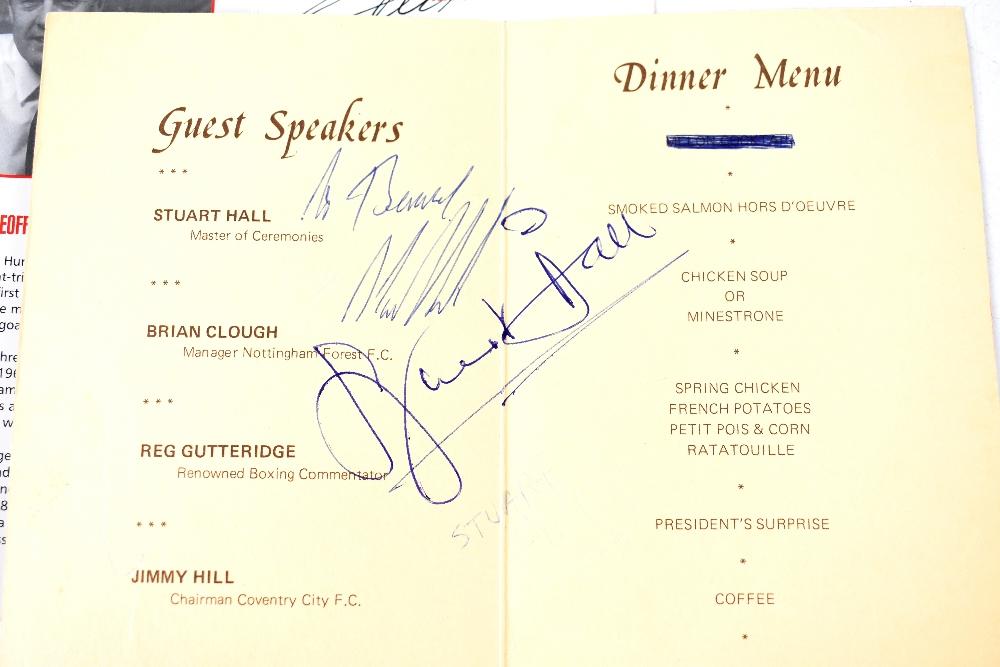 Guest Speakers
* * *
STUART HALL
Master of Ceremonies
* * *
BRIAN CLOUGH
Manager Nottingham Forest F.C.
* * *
REG GUTTERIDGE
Renowned Boxing Commentator
* * *
JIMMY HILL
Chairman Coventry City F.C.
Stuart Hall
STUART
Dinner Menu
*
*
SMOKED SALMON HORS D'OEUVRE
*
CHICKEN SOUP
OR
MINESTRONE
*
SPRING CHICKEN
FRENCH POTATOES
PETIT POIS & CORN
RATATOUILLE
*
PRESIDENT'S SURPRISE
*
COFFEE
*
EOFF